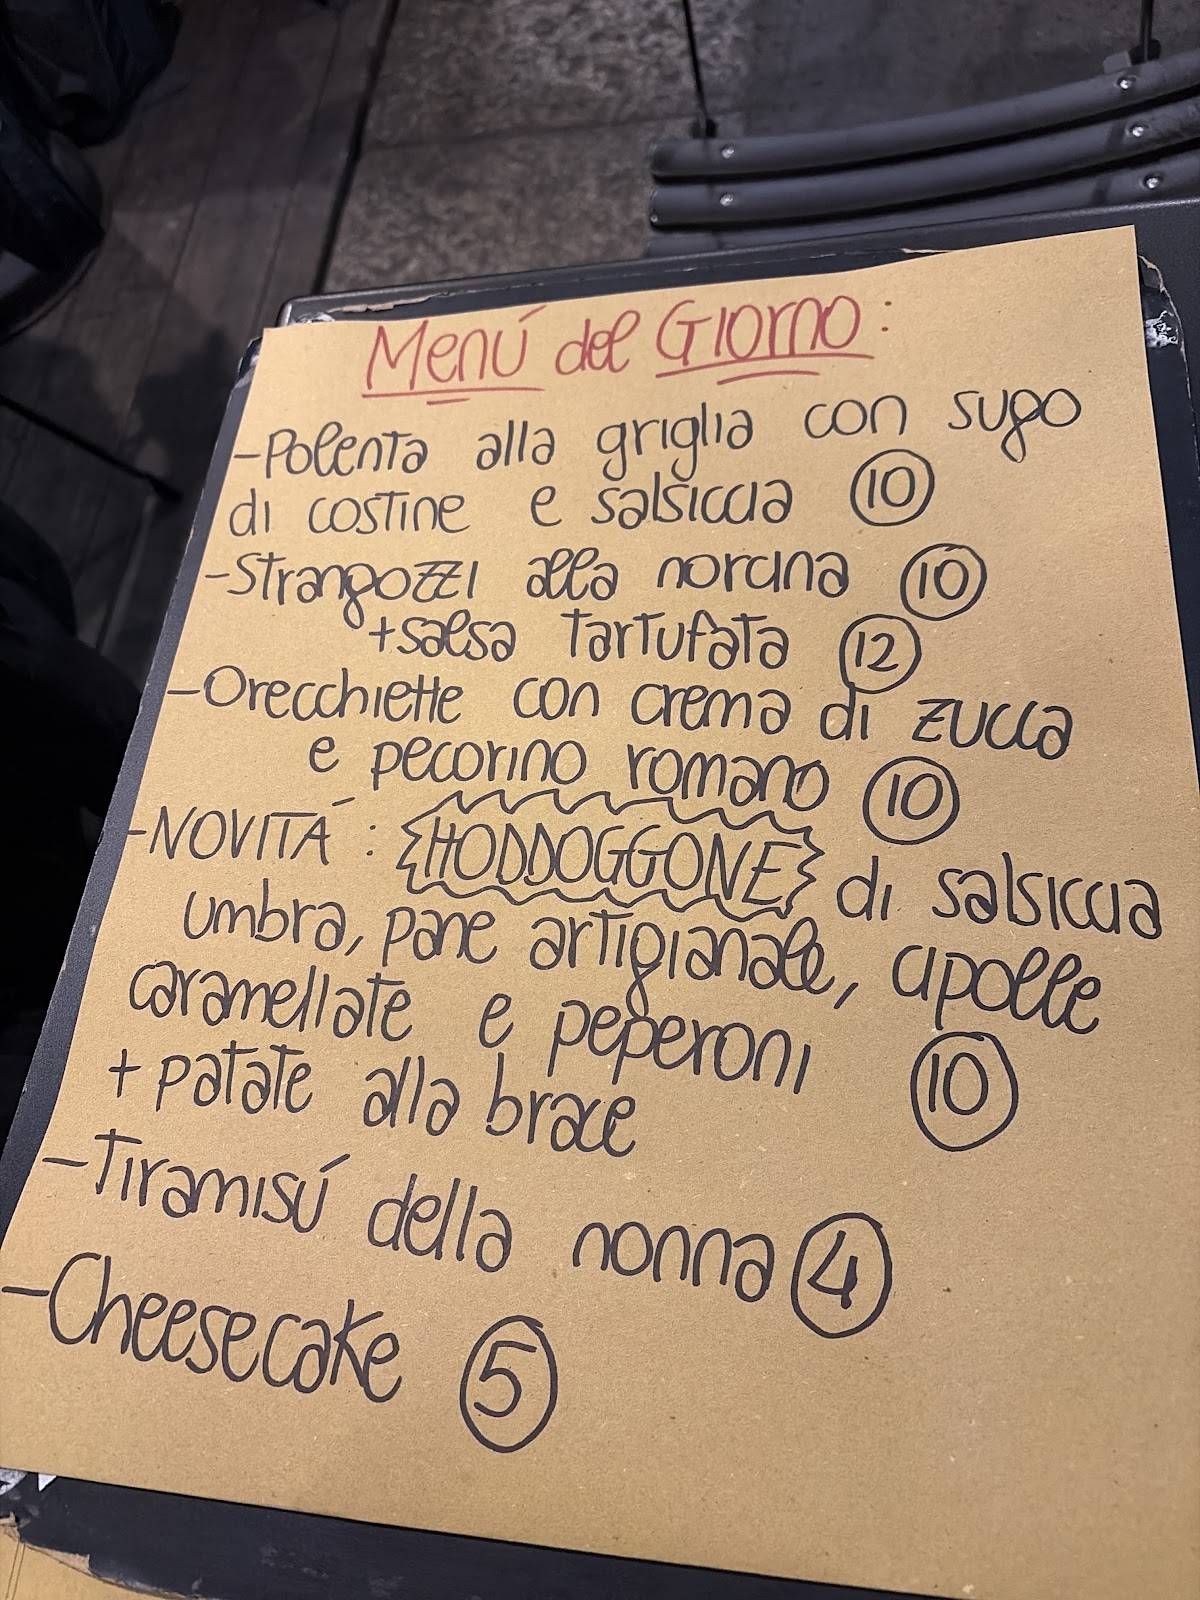 Menú del Giorno:
-Polenta alla griglia con sugo
di costine e salsiccia 10
-Strangozzi alla norcina 10
+salsa tartufata 12
-Orecchiette con crema di zucca
e pecorino romano 10
-NOVITÁ: HODDOGGONE di salsiccia
umbra, pane artigianale, cipolle
caramellate e peperoni
+ patate alla brace 10
-Tiramisú della nonna 4
-Cheesecake 5